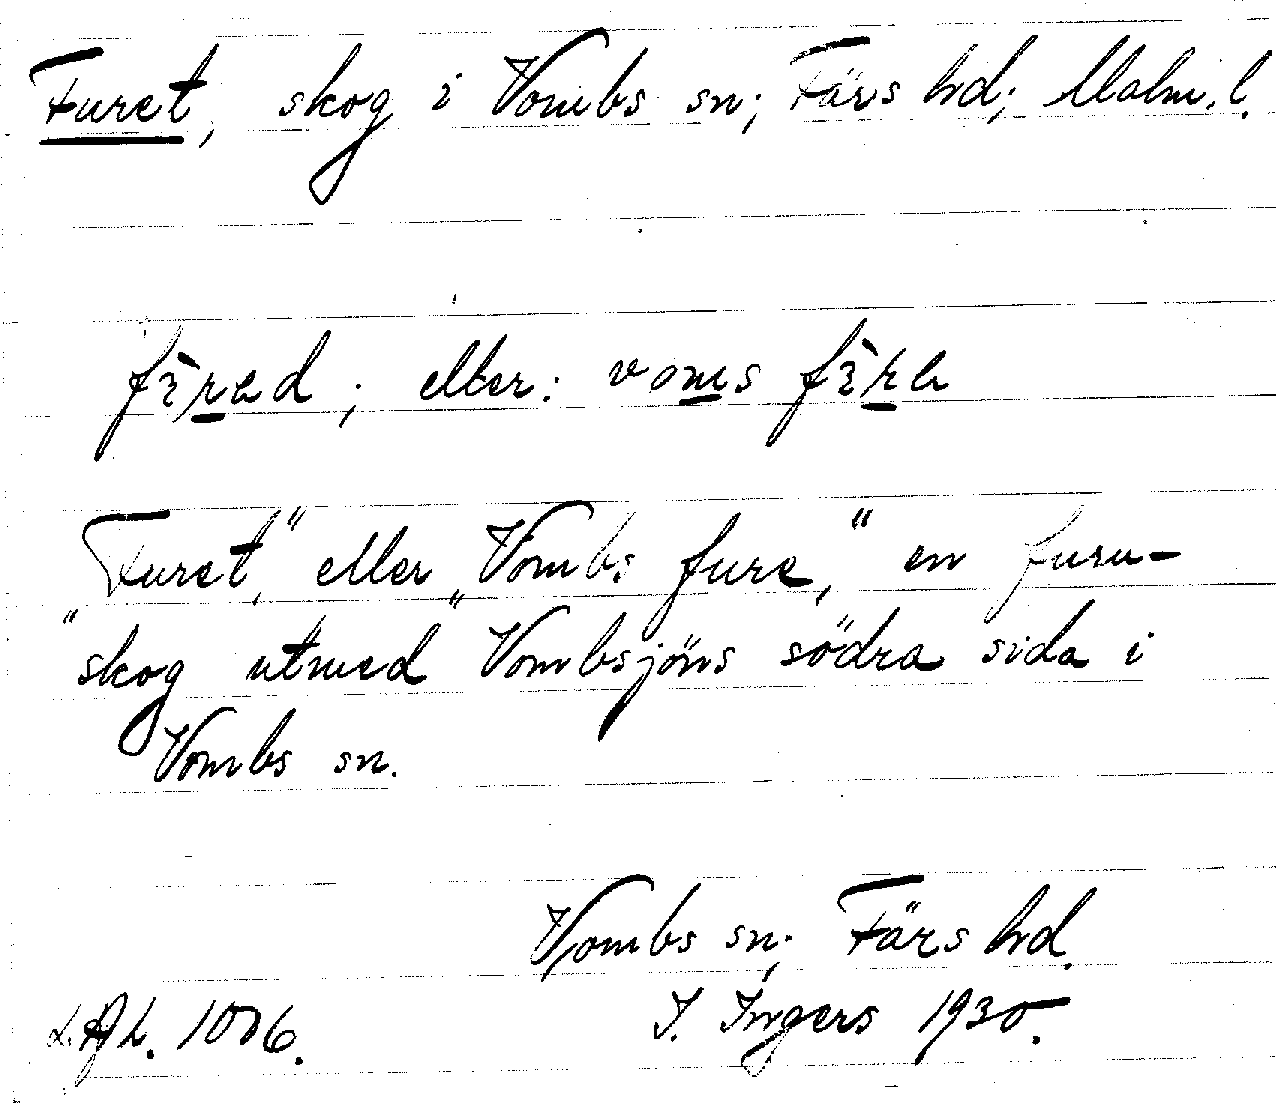 Furet, skog i Vombs sn; Färs hd; Malm. l.
eller: voms
"Furet," eller "Vombs fure," en furu-
skog utmed Vombsjöns södra sida i
Vombs sn.
Vombs sn; Färs hd.
I. Ingers 1930.